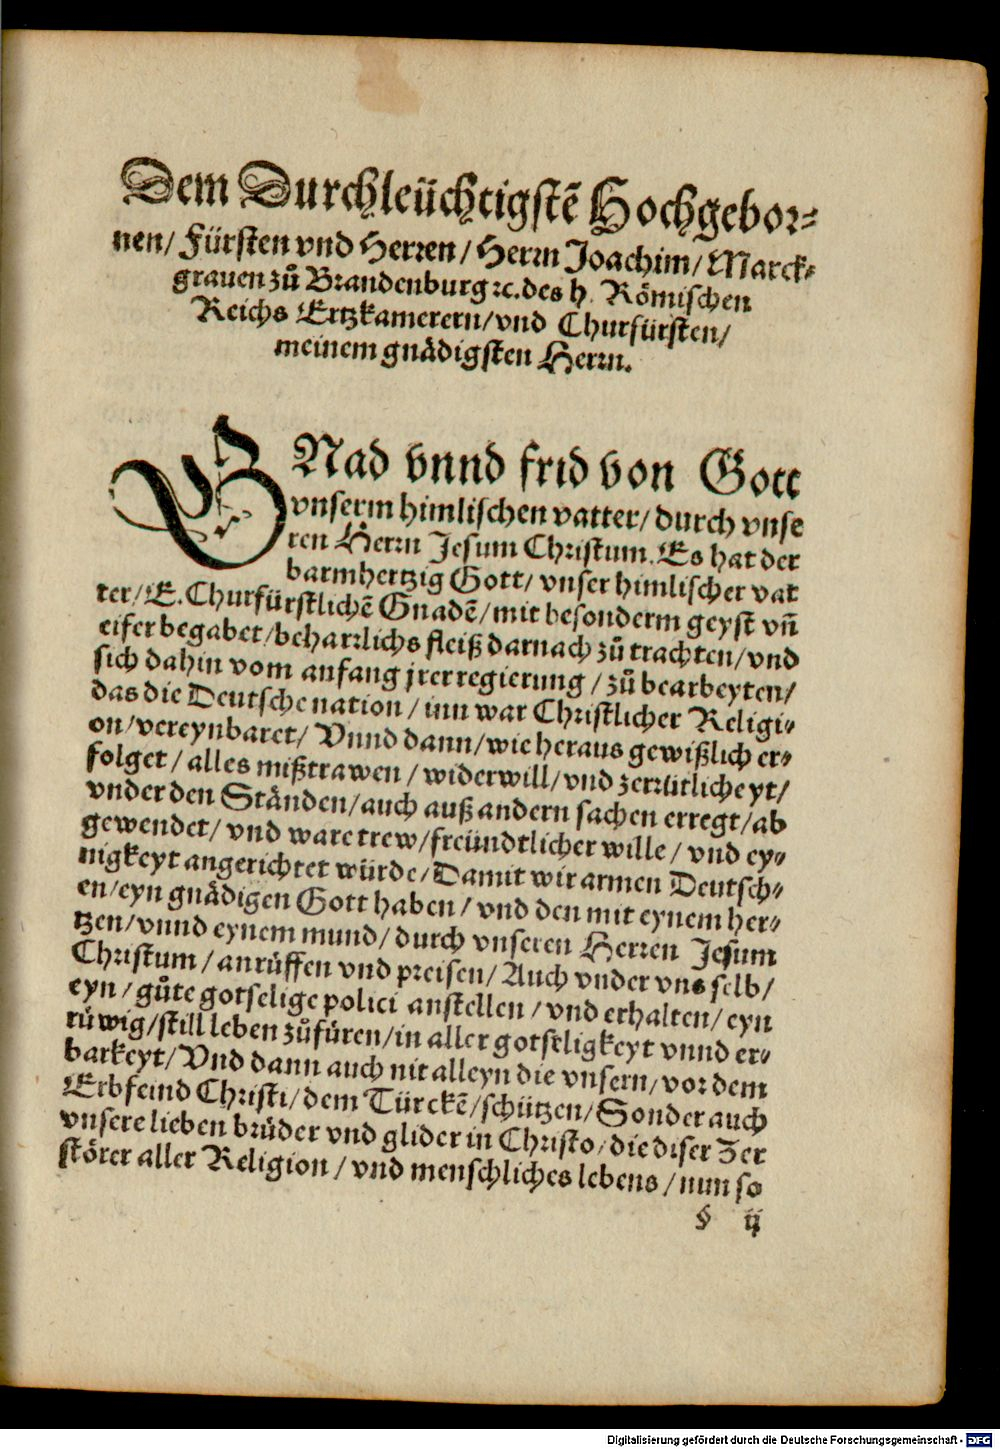 Dem Durchleüchtigstẽ Hochgebor⸗
nen/ Fürsten vnd Herren/ Herrn Joachim/ Marck⸗
grauen zů Brandenburg ꝛc. des h. Römischen
Reichs Ertzkamerern/ vnd Churfürsten/
meinem gnädigsten Herrn.
GNad vnnd frid von Gott
vnserm himlischen vatter/ durch vnse
ren Herrn Jesum Christum. Es hat der
barmhertzig Gott/ vnser himlischer vat
ter/ E. Churfürstlichẽ Gnadẽ/ mit besonderm geyst vñ
eifer begabet/ beharrlichs fleiß darnach zů trachten/ vnd
sich dahin vom anfang jrer regierung/ zů bearbeyten/
das die Deutsche nation/ inn war Christlicher Religi⸗
on/ vereynbaret/ Vnnd dann/ wie heraus gewißlich er⸗
folget/ alles mißtrawen/ widerwill/ vnd zerrütlicheyt/
vnder den Ständen/ auch auß andern sachen erregt/ ab
gewendet/ vnd ware trew/ freündtlicher wille/ vnd ey⸗
nigkeyt angerichtet würde/ Damit wir armen Deutsch⸗
en/ eyn gnädigen Gott haben/ vnd den mit eynem her⸗
tzen/ vnnd eynem mund/ durch vnseren Herren Jesum
Christum/ anrüffen vnd preisen/ Auch vnder vns selb/
eyn/ gůte gotselige polici anstellen/ vnd erhalten/ eyn
rüwig/ still leben zůfüren/ in aller gotseligkeyt vnnd er⸗
barkeyt/ Vnd dann auch nit alleyn die vnsern/ vor dem
Erbfeind Christi/ dem Türckẽ/ schützen/ Sonder auch
vnsere lieben brüder vnd glider in Christo/ die diser Zer
störer aller Religion/ vnd menschliches lebens/ nun so
§ ij
Digitalisierung gefördert durch die Deutsche Forschungsgemeinschaft - DFG